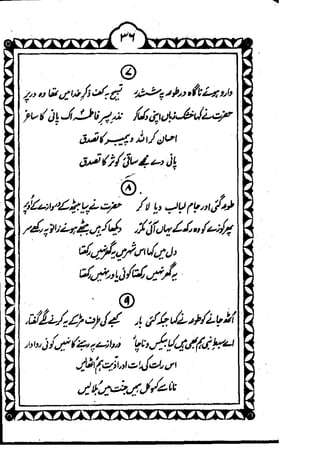 ۳۶
۷
وارد ہوئے ناگاہ در طوعہ پہ تسبیح بکف ذکر خدا میں تھا وہ در پر
حضرت نے کہا خشک زباں اپنی دکھا کر نذر پسر فاطمہ اک پانی کا ساغر
احسان کر اللہ و پیمبر کا تصدق
پانی دے مجھے ساقی کوثر کا تصدق
۸
طوعہ گئی اور جام لبالب دیا لا کر حضرت نے پیا بیٹھ کے دروازے کے اوپر
پھر کوزے کو وہ رکھ کے یہاں آئی مکرر دیکھا کہ ہیں بیٹھے ہوئے زانو پہ رکھے سر
دل میں کہا اس شہر میں یہ گھر نہیں رکھتا
یہ گھر نہیں رکھتا کوئی یاور نہیں رکھتا
۹
اٹھ جانے کو طوعہ نے کہا جبکہ کئی بار کعبے کی طرف مڑ کے یہ کرنے لگے گفتار
اے سبط نبی ہم بھی ہیں کیا بیکس و ناچار دروازے پہ رہنے کا نہیں کوئی روادار
اس رات کی اور اذیت ہم اٹھا لیں
نانا سے کہو کل ہمیں جنت میں بلا لیں